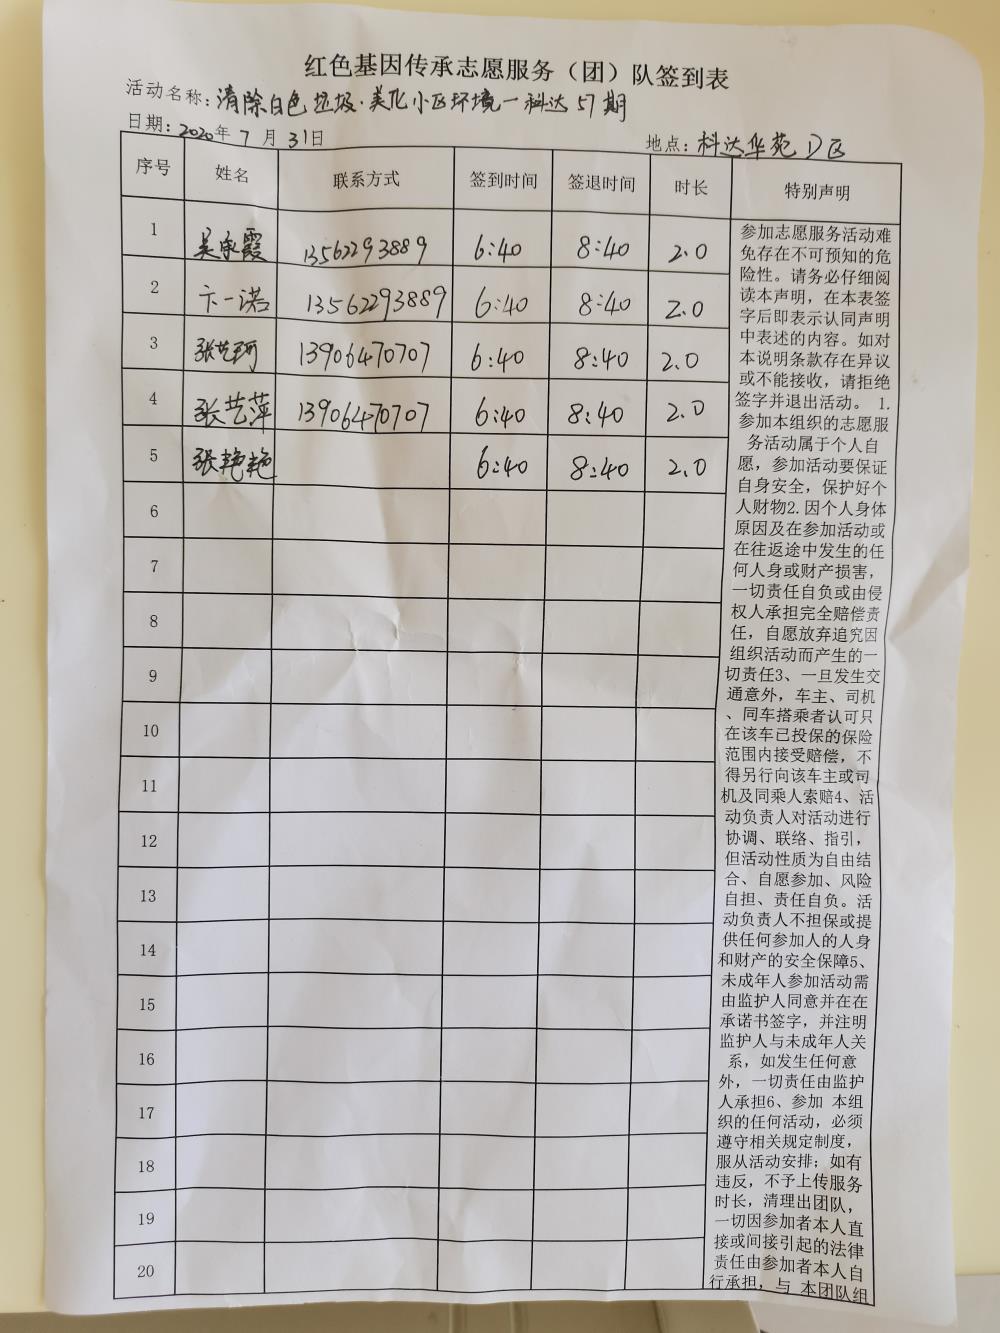 红色基因传承志愿服务（团）队签到表
活动名称：清除白色垃圾·美化小区环境一科达57期
日期：2020年7月31日
地点：科达华苑D区
序号 姓名 联系方式 签到时间 签退时间 时长 特别声明
1 吴承霞 13562293889 6:40 8:40 2.0
2 卞一诺 13562293889 6:40 8:40 2.0
3 张艺珂 13906470707 6:40 8:40 2.0
4 张艺萍 13906470707 6:40 8:40 2.0
5 张艳艳 6:40 8:40 2.0
6
7
8
9
10
11
12
13
14
15
16
17
18
19
20
参加志愿服务活动难
免存在不可预知的危
险性。请务必仔细阅
读本声明，在本表签
字后即表示认同声明
中表述的内容。如对
本说明条款存在异议
或不能接收，请拒绝
签字并退出活动。 1.
参加本组织的志愿服
务活动属于个人自
愿，参加活动要保证
自身安全，保护好个
人财物2.因个人身体
原因及在参加活动或
在往返途中发生的任
何人身或财产损害，
一切责任自负或由侵
权人承担完全赔偿责
任，自愿放弃追究因
组织活动而产生的一
切责任3、一旦发生交
通意外，车主、司机
、同车搭乘者认可只
在该车已投保的保险
范围内接受赔偿，不
得另行向该车主或司
机及同乘人索赔4、活
动负责人对活动进行
协调、联络、指引，
但活动性质为自由结
合、自愿参加、风险
自担、责任自负。活
动负责人不担保或提
供任何参加人的人身
和财产的安全保障5、
未成年人参加活动需
由监护人同意并在在
承诺书签字，并注明
监护人与未成年人关
系，如发生任何意
外，一切责任由监护
人承担6、参加 本组
织的任何活动，必须
遵守相关规定制度，
服从活动安排；如有
违反，不予上传服务
时长，清理出团队，
一切因参加者本人直
接或间接引起的法律
责任由参加者本人自
行承担，与 本团队组